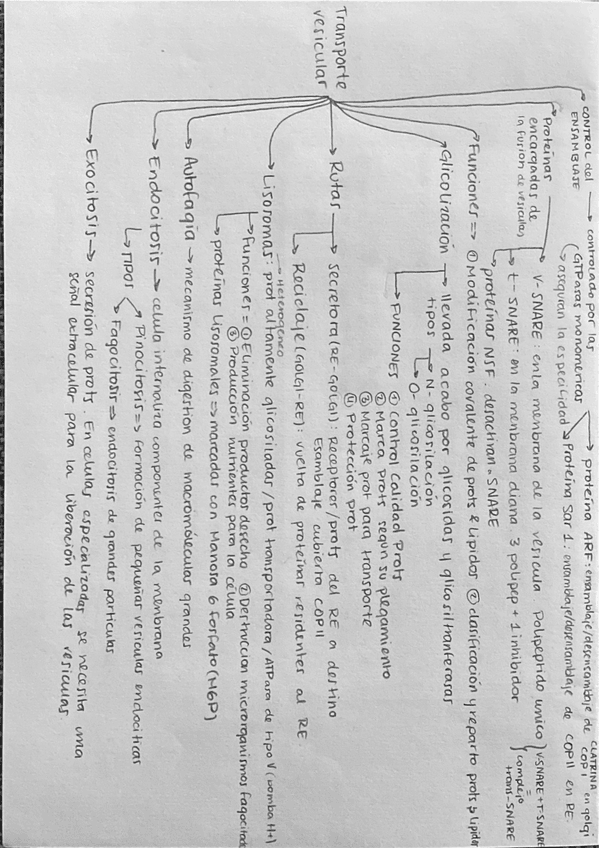 Transporte
vesicular
CONTROL del
ENSAMBLAJE → controlado por las
GTPasas monomericas
↳ aseguran la especifidad
proteina ARF: ensamblaje/desensamblaje de CLATRINA
COPI en golgi
Proteina Sar 1: ensamblaje/desensamblaje de COPII en RE.
Proteinas
encargadas de
la fusion de vesiculas
V-SNARE: en la menbrana de la vesicula Polipeptido unico
t-SNARE: en la menbrana diana 3 polipep + 1 inhibidor
V-SNARE + T-SNARE
=
complejo
trans-SNARE
proteinas NSF. desactivan SNARE
Funciones => ① Modificacion covalente de prots & lipidos ② clasificación y reparto prots & lipidos
Glicolización → llevada acabo por glicosidas y glicosiltranferasas
tipos → N-glicosilación
O-glicosilación
FUNCIONES ① Control calidad Prots
② Marca Prots según su plegamiento
③ Marcaje prot para transporte
④ Protección prot
Rutas → Secretora (RE-GOLGI): Receptores/prots del RE a destino
Esamblaje cubierta COPII
Reciclaje (GOLGI-RE): vuelta de proteinas residentes al RE
Lisosomas: prot altamente glicosiladas / prot transportadora / ATPasa de tipo V (bomba H+)
→ Heterogeneo
Funciones = ① Eliminación productos desecho ② Destruccion microrganismos fagocitado
③ Producción nutrientes para la célula
proteinas Lisosomales => marcadas con Manosa 6 fosfato (M6P)
Autofagia → mecanismo de digestion de macromoléculas grandes
Endocitosis → célula internaliza componentes de la menbrana
TIPOS Pinocitosis => formación de pequeñas vesiculas endociticas
Fagocitosis => endocitosis de grandes particulas
Exocitosis → secreción de prots. En celulas especializadas se necesita una
señal extracelular para la liberación de las vesiculas